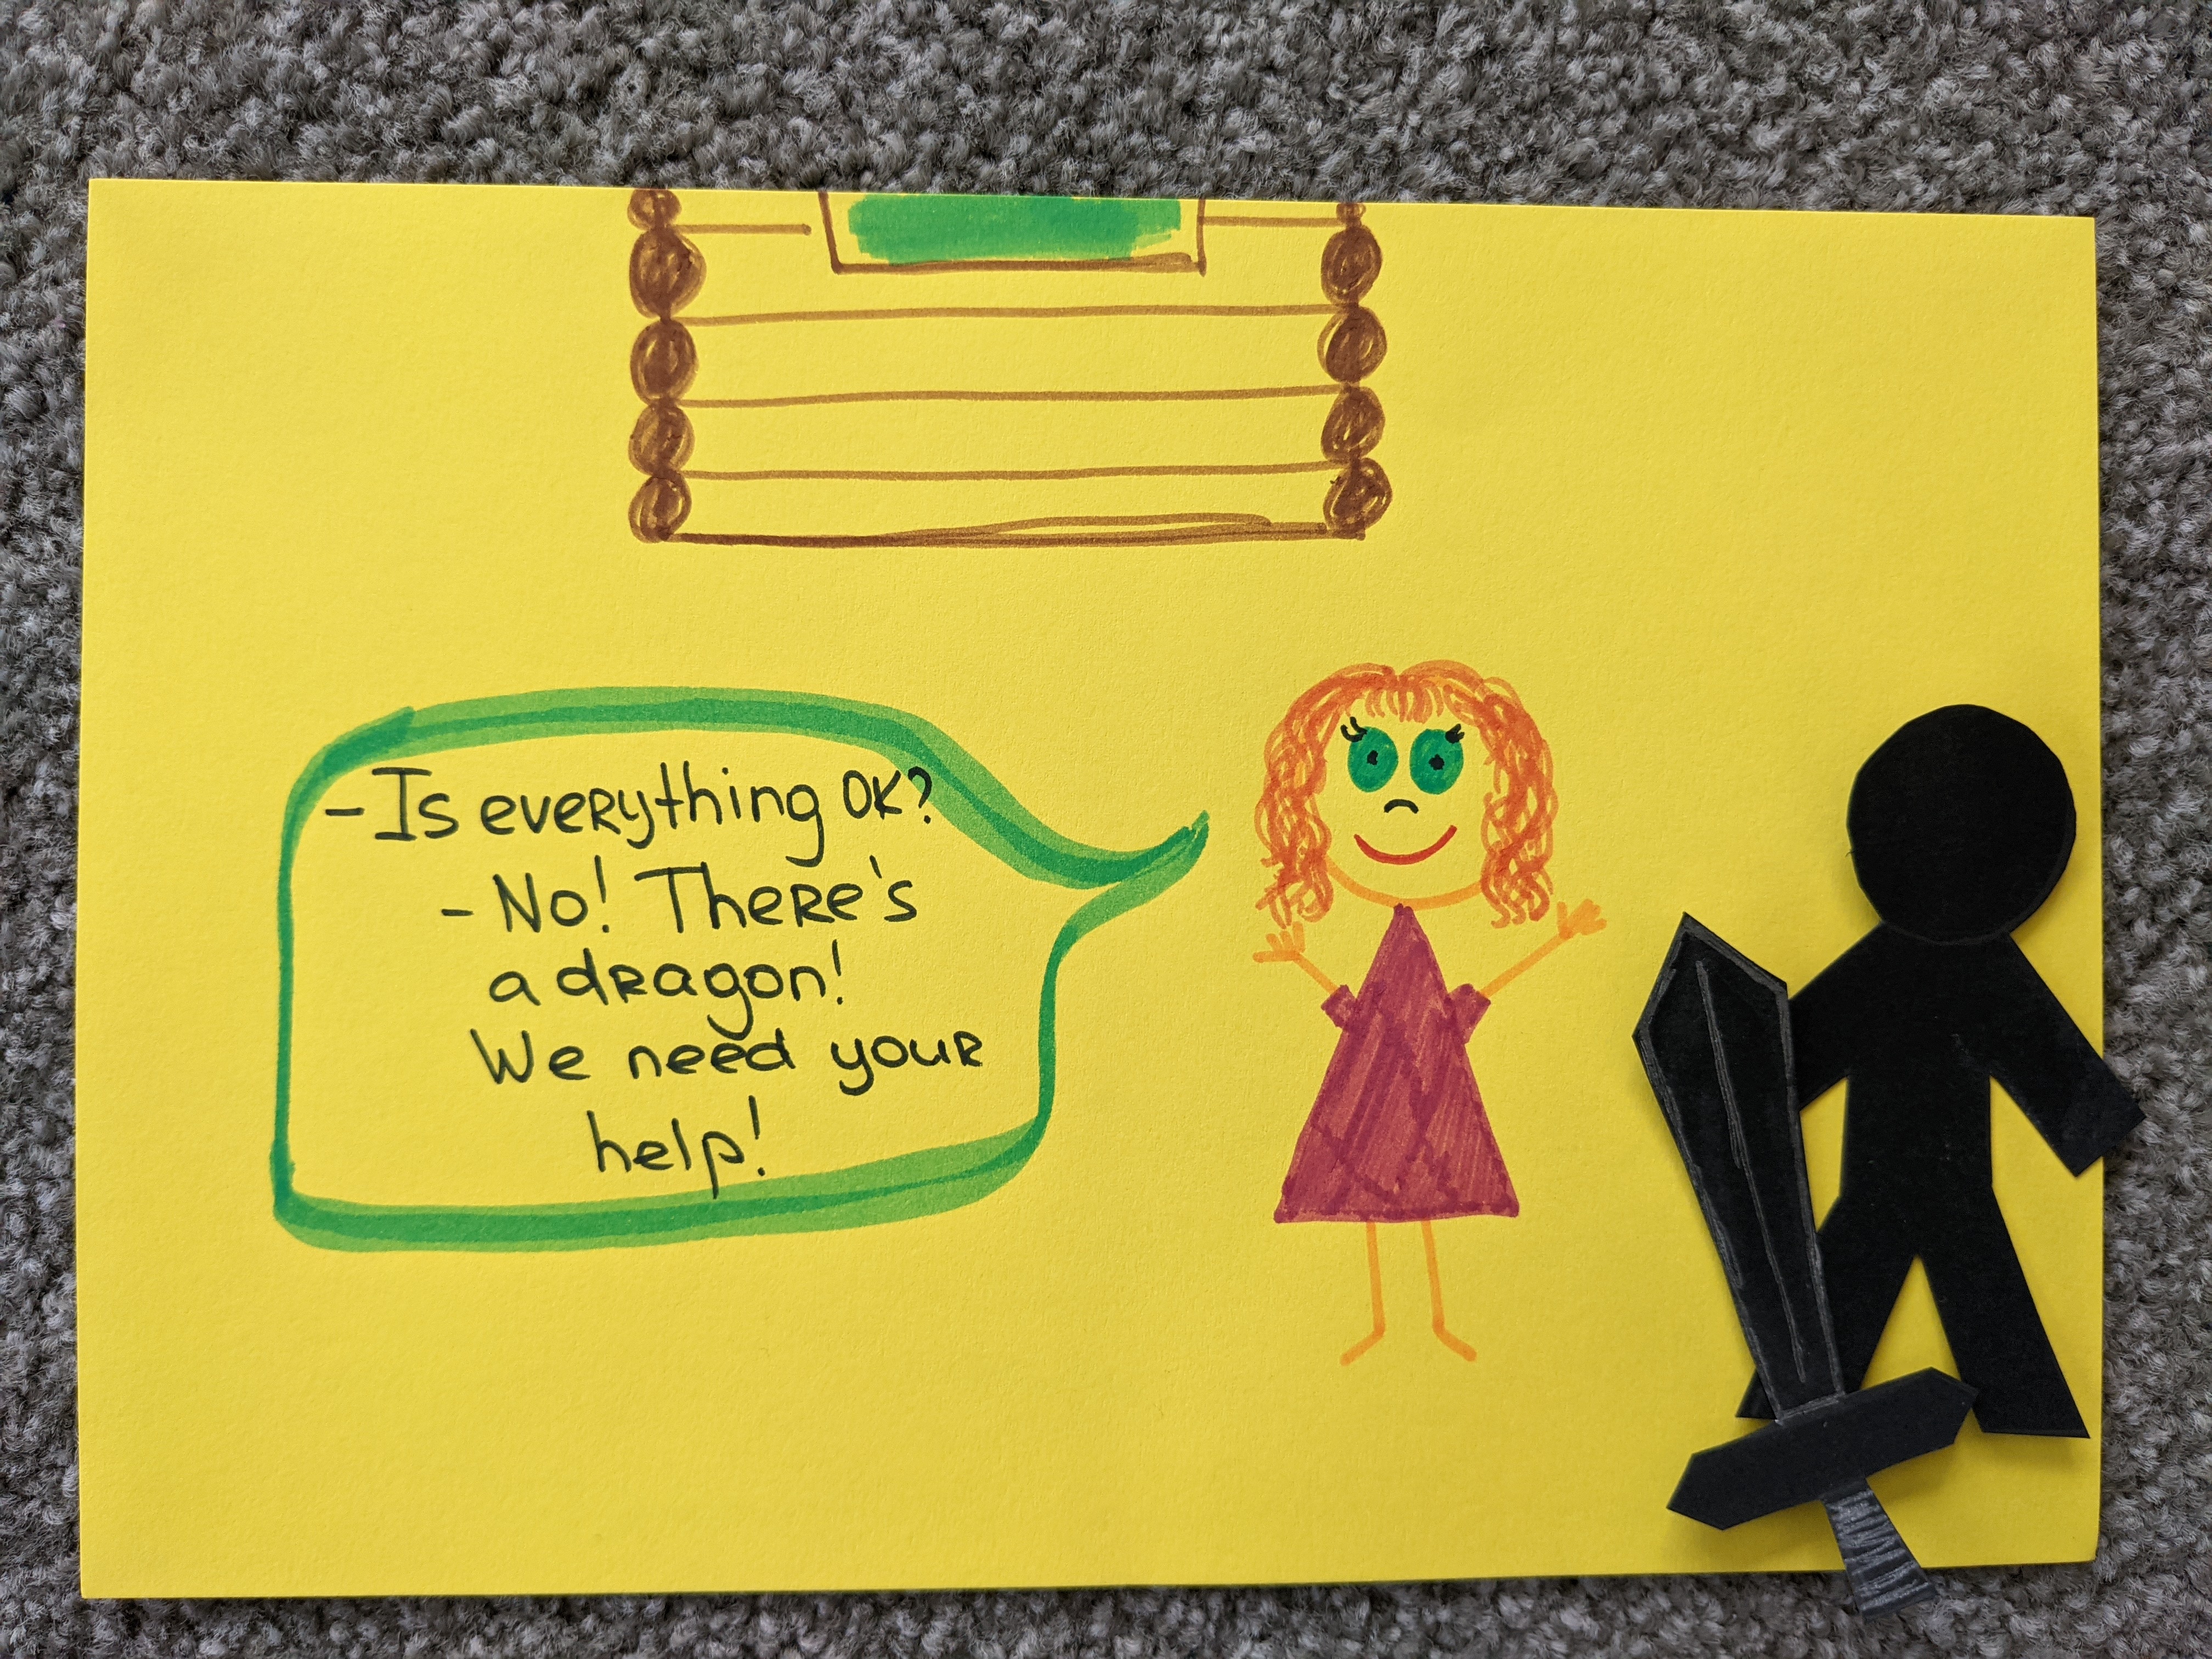 - Is everything OK?
- No! There's
a dragon!
We need your
help!